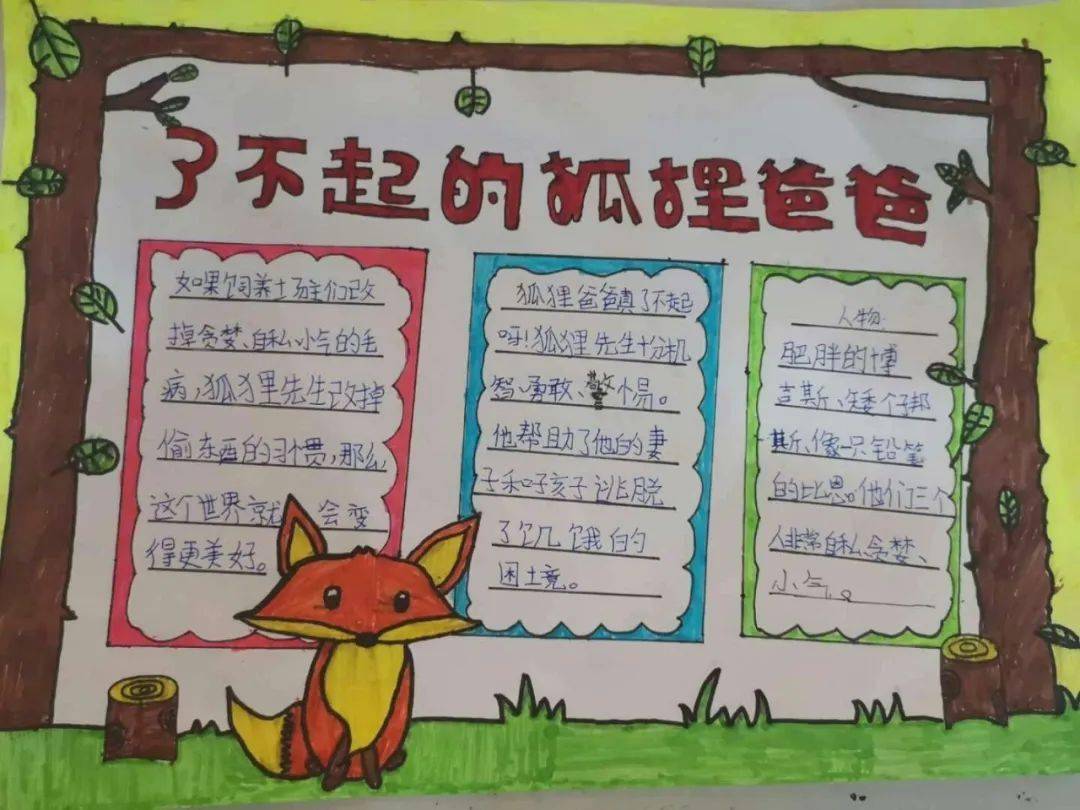 了不起的狐狸爸爸
如果饲养土场主们改
掉贪婪、自私、小气的毛
病,狐狸先生改掉
偷东西的习惯,那么
这个世界就会变
得更美好。
狐狸爸爸真了不起
呀!狐狸先生十分机
智、勇敢、警惕。
他帮助了他的妻
子和好孩子逃脱
了饥饿的
困境。
人物:
肥胖的博
吉斯、矮个子邦
斯、像一只铅笔
的比恩。他们三个
人非常自私、贪婪、
小气。